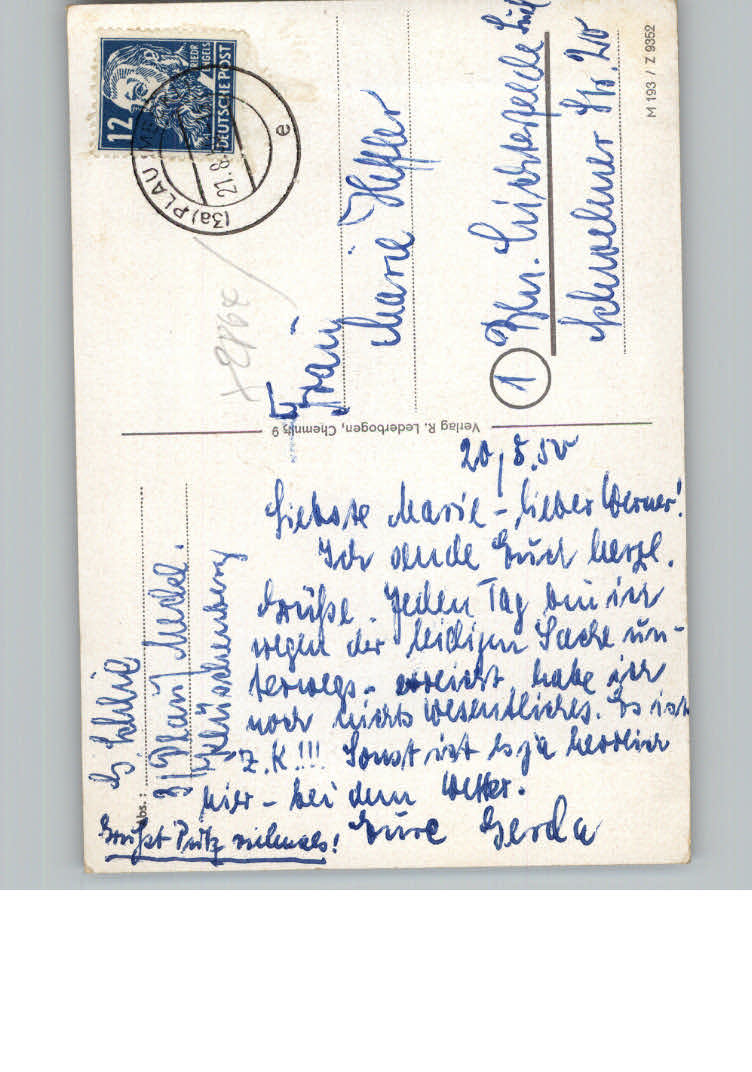 20/8.50
Liebste Marie - lieber Werner!
Ich sende Euch herzl.
Grüße. Jeden Tag bin ich
wegen der leidigen Sache un-
terwegs - erreicht habe ich
noch nichts wesentliches. Es ist
z.K!!! Sonst ist es ja herrlich
hier - bei dem Wetter.
Eure Gerda
Grüßt Putz vielmals!
Abs.:
G
3) Plau/Meckl.
Klüschenberg
Verlag R. Lederbogen, Chemnitz 9
12
DEUTSCHE POST
FRIEDR ENGELS
(3a) PLAU
21.8.
e
Frau
Marie
1
Bln. Lichterfelde Süd
Schwelmer Str. 20
M 193 / Z 9352